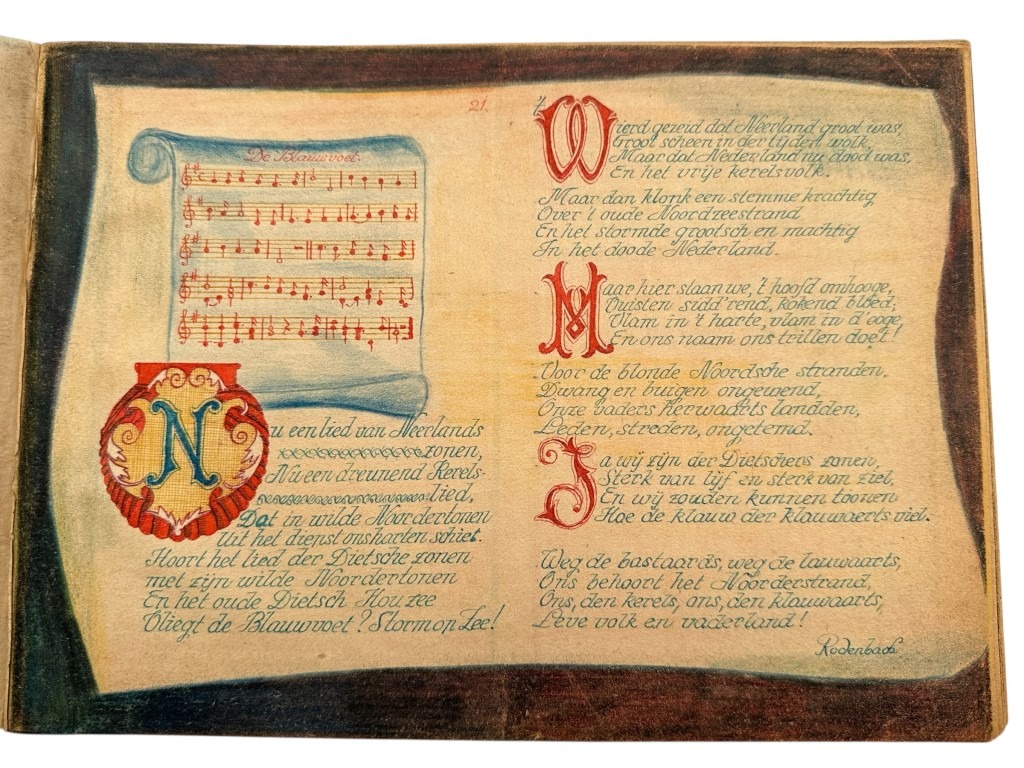 21.
De Blauwvoet.
Nu een lied van Neerlands
zonen,
Nu een dreunend Kerels-
lied,
Dat in wilde Noordertonen
Uit het dienst ons harten schiet.
Hoort het lied der Dietsche zonen
met zijn wilde Noordertonen
En het oude Dietsch Houzee
Vliegt de Blauwvoet? Storm op Zee!
't Wierd gezeid dat Neerland groot was,
Groot scheen in der tijden wolk,
Maar dat Nederland nu dood was,
En het vrije kerelsvolk.
Maar dan klonk een stemme krachtig
Over 't oude Noordzeestrand
En het stormde grootsch en machtig
In het doode Nederland.
Maar hier slaan we, 't hoofd omhooge,
Vuisten sidd'rend, kokend bloed,
Vlam in 't harte, vlam in d'ooge
En ons naam ons trillen doet!
Voor de blonde Noordsche stranden,
Dwang en buigen ongewend,
Onze vaders herwaarts landden,
Leden, streden, ongetemd.
Ja wij zijn der Dietschers zonen,
Sterk van lijf en sterk van ziel,
En wij zouden kunnen toonen
Hoe de klauw der klauwaerts viel.
Weg de bastaards, weg de lauwaarts,
Ons behoort het Noorderstrand,
Ons, den kerels, ons, den klauwaarts,
Leve volk en vaderland!
Rodenbach